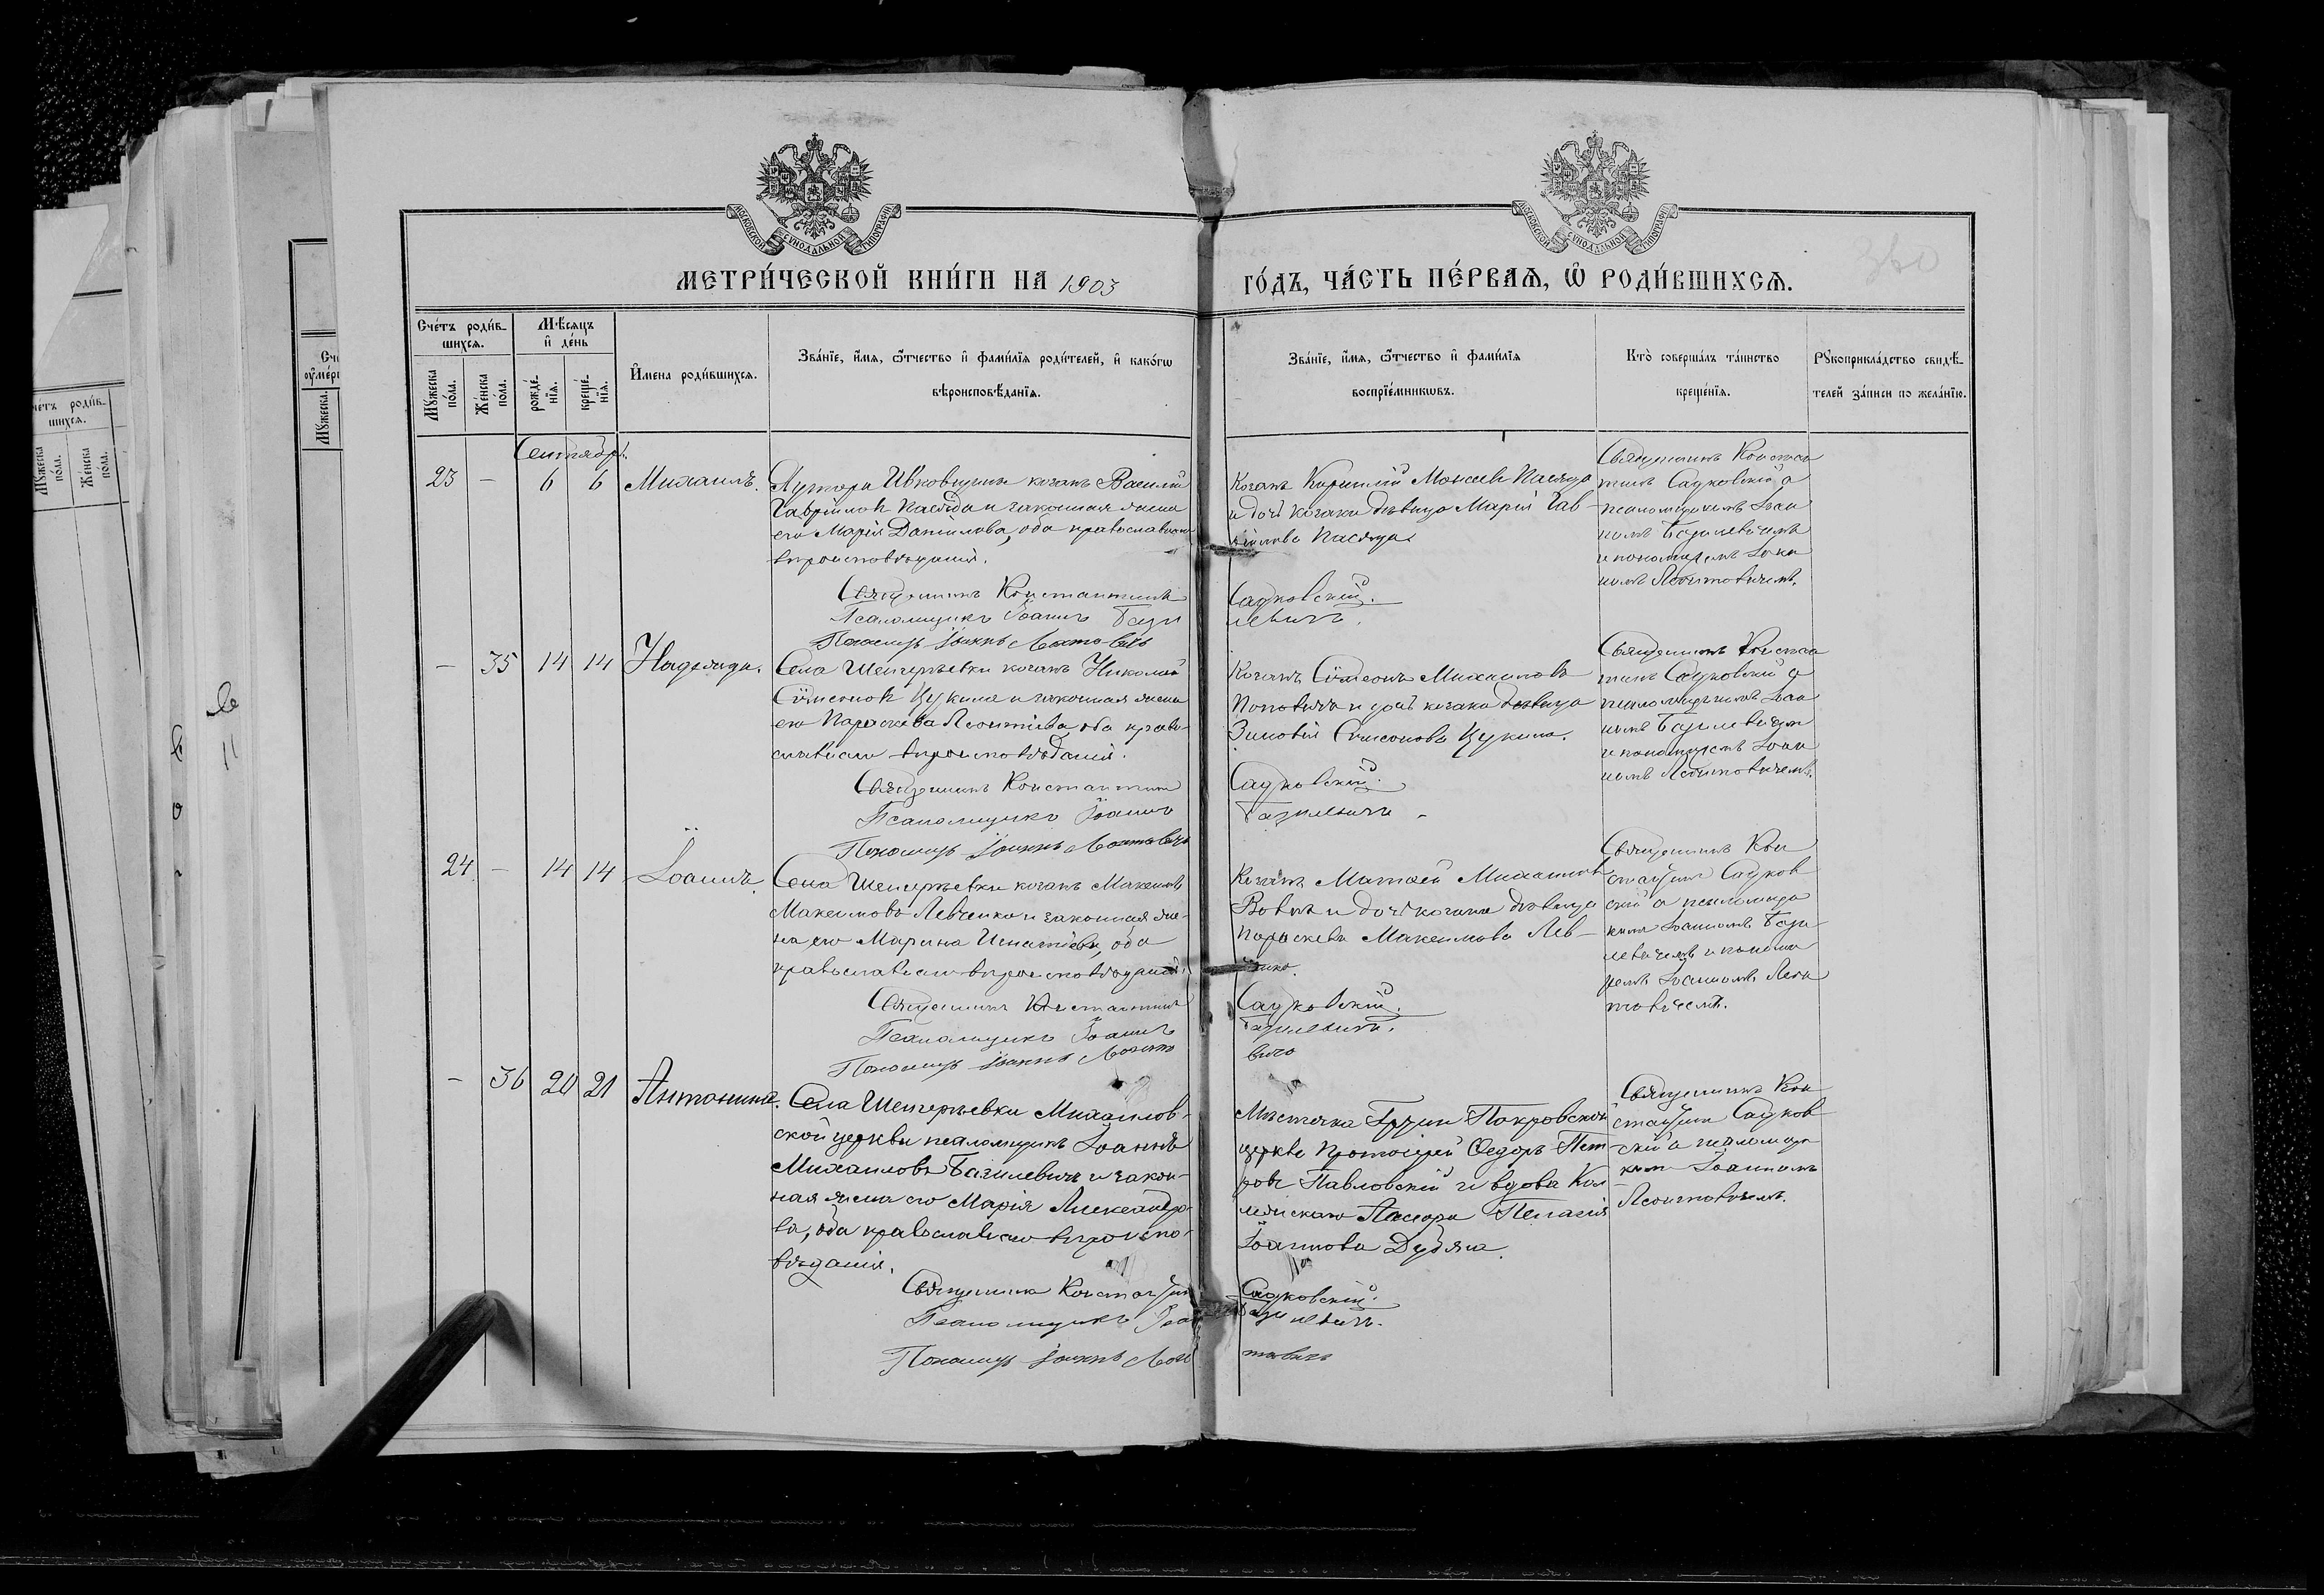 МОСКОВСКОЙ СУНОДАЛЬНОЙ ТИПОГРАФІИ
МОСКОВСКОЙ СУНОДАЛЬНОЙ ТИПОГРАФІИ
МЕТРИ́ЧЕСКОЙ КНИ́ГИ НА 1903
ГО́ДЪ, ЧА́СТЬ ПЕ́РВАѦ, Ѽ РОДИ́ВШИХСѦ.
360
Сче́тъ роди́в-
шихсѧ.
Мѣ́сѧцъ
и҆ де́нь
Мꙋ́жеска по́ла.
Же́нска по́ла.
рожде́-нїѧ.
креще́-нїѧ.
И҆мена роди́вшихсѧ.
Зва́нїе, и҆́мѧ, ѻ҆́тчество и҆ фами́лїѧ роди́телей, и҆ како́гѡ
вѣроисповѣ́данїѧ.
Зва́нїе, и҆́мѧ, ѻ҆́тчество и҆ фами́лїѧ
воспрїе́мникѡвъ.
Кто̀ соверша́лъ та́инство
креще́нїѧ.
Рꙋкоприкла́дство свидѣ́-
телей за́писи по жела́нїю.
Сентябрь.
23 — 6 6 Михаилъ.
Хутора Ивковщины козакъ Василій
Гавріиловъ Пасяда и законная жена
его Марія Даніилова, оба православнаго
вѣроисповѣданія.
Священникъ Константинъ
Псаломщикъ Іоаннъ Бази
Пономарь Іоаннъ Леонтовичъ
Козакъ Кириллій Моисеевъ Пасяда
и дочь козака дѣвица Марія Гав-
ріилова Пасяда
Садковскій.
левичъ.
Священникъ Констан
тинъ Садковскій с
псаломщикомъ Іоан
номъ Базилевичемъ
и пономаремъ Іоан
номъ Леонтовичемъ.
— 35 14 14 Надежда.
Села Шенгерѣевки козакъ Николай
Сѵмеоновъ Цукина и законная жена
его Параскева Леонтіева, оба право-
славнаго вѣроисповѣданія.
Священникъ Константинъ
Псаломщикъ Іоаннъ
Пономарь Іоаннъ Леонтовичъ
Козакъ Сѵмеонъ Михаиловъ
Поповичъ и дочь козака дѣвица
Зиновія Симеонова Цукина.
Садковскій.
Базилевичъ
Священникъ Констан
тинъ Садковскій с
псаломщикомъ Іоан
номъ Базилевичем
и пономаремъ Іоан
номъ Леонтовичемъ.
24 — 14 14 Іоаннъ.
Села Шенгерѣевки козакъ Максимъ
Максимовъ Левченко и законная же-
на его Марина Игнатіева, оба
православнаго вѣроисповѣданія.
Священникъ Константинъ
Псаломщикъ Іоаннъ
Пономарь Іоаннъ Леонто
Козакъ Матѳей Михаиловъ
Вовкъ и дочь козака дѣвица
Параскева Максимова Лев-
ченко.
Садковскій.
Базилевичъ.
вичъ
Священникъ Кон
стантинъ Садков
скій с псаломщи
комъ Іоанномъ Бази
левичемъ и понома
ремъ Іоанномъ Леон
товичемъ.
— 36 20 21 Антонина.
Села Шенгерѣевки Михаилов-
ской церкви псаломщикъ Іоаннъ
Михаиловъ Базилевичъ и закон-
ная жена его Марія Александро-
ва, оба православнаго вѣроиспо-
вѣданія.
Священникъ Константин
Псаломщикъ Іоан
Пономарь Іоаннъ Леон
Мѣстечка Груни Покровской
церкви Протоіерей Ѳедоръ Пет
ровъ Павловскій и вдова Кол
лежскаго Пелагія
Іоаннова Дубяга.
Садковскій.
Базилевичъ.
товичъ
Священникъ Кон
стантин Садков
скій с псаломщи
комъ Іоанномъ
Леонтовичемъ.